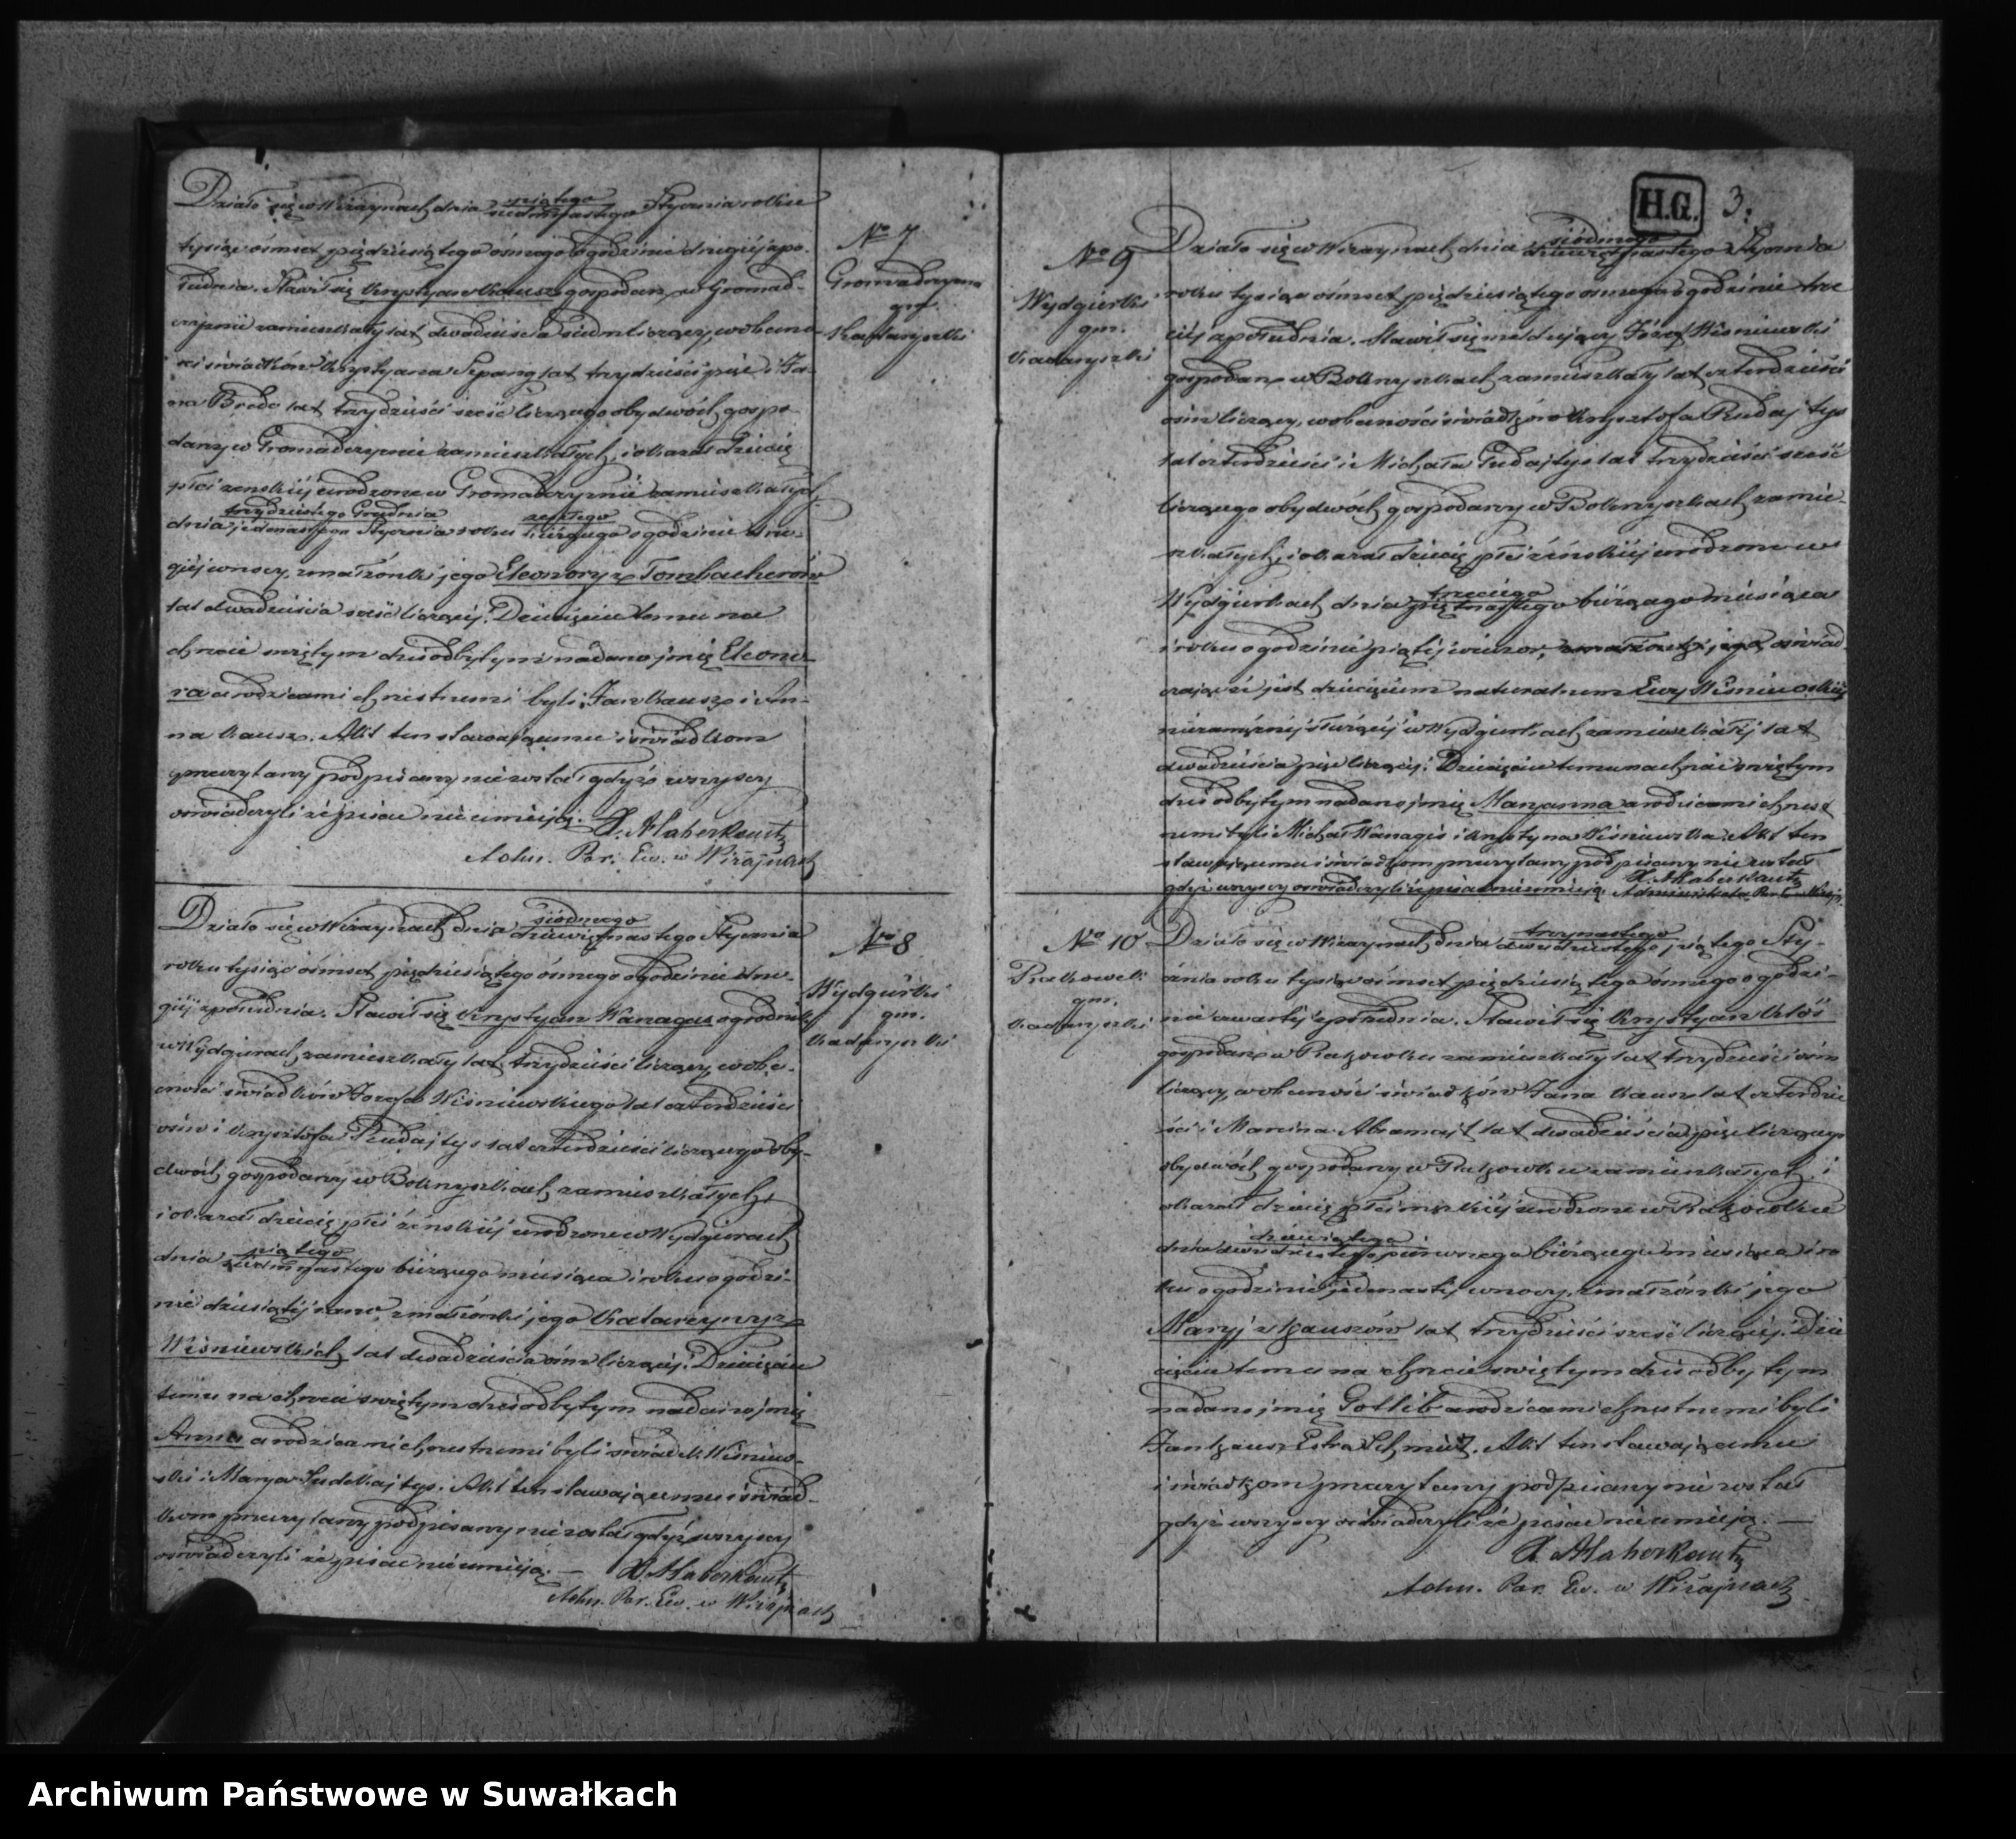 Działo się w Wiżaynach dnia piątego siedmnastego Stycznia roku
tysiąc ośmset pięćdziesiątego ósmego o godzinie drugiéj z po-
łudnia. Stawił się Krystyan Kausz gospodarz w Gromad-
czyznie zamieszkały lat dwadzieścia siedm liczący, w obecno-
ści świadków Krystyana Szpang lat trzydzieści pięć i Ja-
na Brode lat trzydzieści sześć liczącego obydwóch gospo-
darzy w Gromadczyznie zamieszkałych, i okazał dziecię
płci żenskiéj urodzone w Gromadczyznie zamieszkałych
dnia trzydziestego Grudnia jedenastego Stycznia roku zeszłego bieżącego o godzinie dru-
giéj w nocy, z małżonki jego Eleonory z Tombacherów
lat dwadzieścia sześć liczącéj. Dziecięciu temu na
chrzcie świętym dziś odbytym nadano jmię Eleono-
ra a rodzicami chrzestnemi byli Jan Kausz i An-
na Kausz. Akt ten stawającemu i świadkom
przeczytany podpisany nie został gdyż wszyscy
oświadczyli że pisać nie umieją.
Adm. Par. Ew. w Wiżajnach
No 7
Gromadczyzna
gm.
Kadaryszki
Działo się w Wiżaynach dnia siódmego dziewiętnastego Stycznia
roku tysiąc ośmset pięćdziesiątego ósmego o godzinie dru-
giéj z południa. Stawił się Krystyan Wanagas ogrodnik
w Wydgirach zamieszkały lat trzydzieści liczący, w obe-
cności świadków Jozefa Wiśniewskiego lat czterdzieści
ośm i Krysztofa Rudajtys lat czterdzieści liczącego oby-
dwóch gospodarzy w Boknyszkach zamieszkałych,
i okazał dziecię płci żénskiéj urodzone w Wydgirach
dnia piątego siedmnastego bieżącego miesiąca i roku o godzi-
nie dziesiątéj rano, z małżonki jego Katarzyny z
Wiśniewskich lat dwadzieścia ośm liczącéj. Dziecięciu
temu na chrzcie świętym dziś odbytym nadano jmię
Anna a rodzicami chrzestnemi byli świadek Wiśniew-
ski i Marya Rudokajtys. Akt ten stawającemu i świad-
kom przeczytany podpisany nie został gdyż wszyscy
oświadczyli że pisać nie umieją. —
Adm. Par. Ew. w Wiżajnach
No 8
Wydgirki
gm.
Kadaryszki
H.G. 3.
No 9
Wydgierki
gm.
Kadaryszki
Działo się w Wiżaynach dnia siódmego dziewiętnastego Stycznia
roku tysiąc ośmset pięćdziesiątego ósmego o godzinie trze
ciéj z południa. Stawił się meldujący Józef Wiśniewski
gospodarz w Boknyszkach zamieszkały lat czterdzieści
ośm liczący, w obecności świadków Krysztofa Rudajtys
lat czterdzieści i Michała Gudajtys lat trzydzieści sześć
liczącego obydwóch gospodarzy w Boknyszkach zamie-
szkałych, i okazał dziecię płci żénskiéj urodzone w
Wydgierkach dnia trzeciego piętnastego bieżącego miesiąca
i roku o godzinie piątéj wieczor, z małżonki jego, oświad
czając że jest dziecięciem naturalnem Ewy Wiśniewskiéj
niezamężnéj służącéj w Wydgierkach zamieszkałéj lat
dwadzieścia pięć liczącéj. Dziecięciu temu na chrzcie świętym
dziś odbytym nadano jmię Maryanna a rodzicami chrzest
nemi byli Michał Wanagis i Krystyna Wiśniewska. Akt ten
stawającemu i świadkom przeczytany podpisany nie został
gdyż wszyscy oświadczyli że pisać nie umieją.
No 10
Rakowek
gm.
Kadaryszki
Działo się w Wiżaynach dnia trzynastego dwudziestego piątego Sty-
cznia roku tysiąc ośmset pięćdziesiątego ósmego o godzi-
nie czwartéj z południa. Stawił się Krystyan Kłós
gospodarz w Rakowku zamieszkały lat trzydzieści ośm
liczący, w obecności świadków Jana Kausz lat czterdzie
ści i Marcina Abramajt lat dwadzieścia pięć liczącego
obydwóch gospodarzy w Rakowku zamieszkałych, i
okazał dziecię płci męzkiéj urodzone w Rakowku
dnia dziewiątego dwudziestego pierwszego bieżącego miesiąca i ro
ku o godzinie jedenastéj w nocy, z małżonki jego
Maryj z Kauszów lat trzydzieści sześć liczącéj. Dzie
cięciu temu na chrzcie świętym dziś odbytym
nadano jmię Gottlib a rodzicami chrzestnemi byli
Jan Kausz Estra Schmidt. Akt ten stawającemu
i świadkom przeczytany podpisany nie został
gdyż wszyscy oświadczyli że pisać nie umieją. —
Adm. Par. Ew. w Wiżajnach
Archiwum Państwowe w Suwałkach